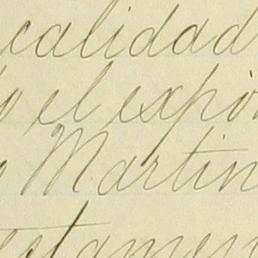 calidad
o el expo
Martin
estamen